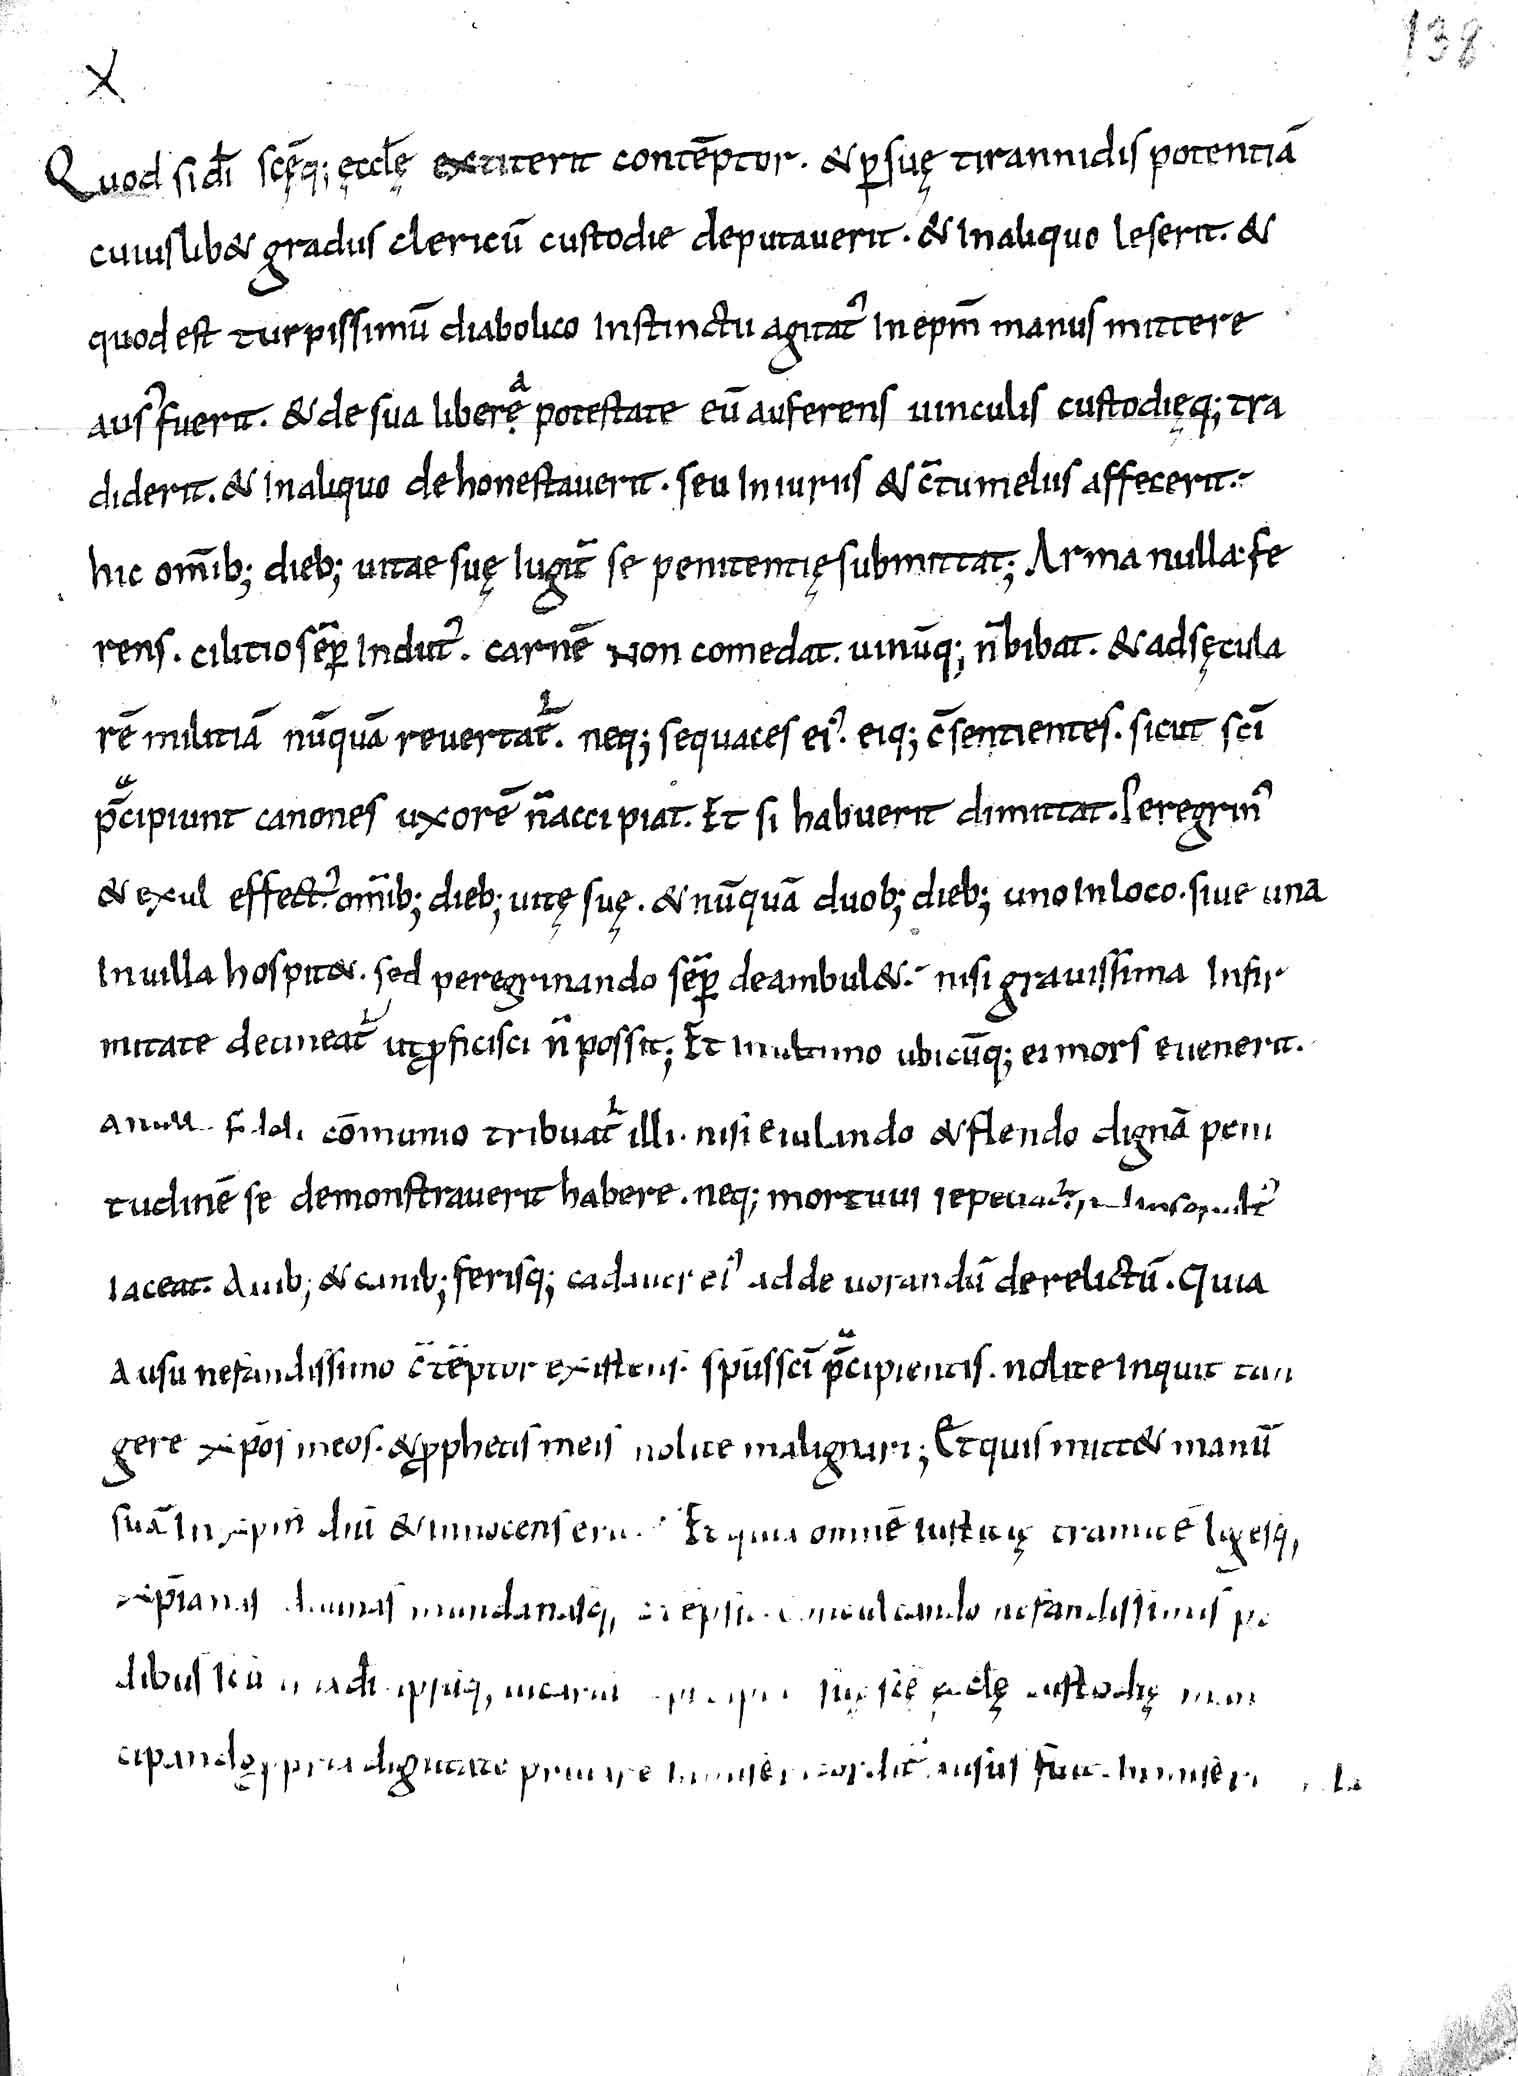 138
X
Quod si dī̄ scę̄q; ęccłę extiterit contēptor. & ꝑ suę tirannidis potentiā
cuiuslib& gradus clericū custodie deputauerit. & In aliquo leserit. &
quod est turpissimū diabolico Instinctu agitat᷒ In ep̄m manus mittere
aus᷒ fuerit. & de sua liberę̄ potestate eū auferens uinculis custodięq; tra
diderit. & In aliquo dehonestauerit. seu In iuriis & c̄tumeliis affecerit.
hic om̄ib; dieb; uitae suę lugit᷒ se penitentię submittat; Arma nulla fe
rens. cilitio sēꝑ Indut᷒. carnē Non comedat. uinūq; n̄ bibat. & ad sęcula
rē militiā nūquā reuertat᷒. neq; sequaces ei᷒. eiq; c̄sentientes. sicut sc̄i
p̄cipiunt canones uxorē n̄ accipiat. Et si habuerit dimittat. Peregrin᷒
& exul effect᷒ om̄ib; dieb; uitę suę. & nūquā duob; dieb; uno In loco. siue una
In uilla hospit&. sed peregrinando sēꝑ deambul&. nisi grauissima Infir
mitate detineat᷒ ut ꝓficisci n̄ possit; Et In ultimo ubicūq; ei mors euenerit.
cōmunio tribuat᷒ illi. nisi eiulando & flendo dignā peni
tudinē se demonstrauerit habere. neq; mortuus
Iaceat. Auib; & canib; ferisq; cadauer ei᷒ ad deuorandū derelictū. Quia
Ausu nefandissimo c̄tēptor existens. sp̄us sc̄i p̄cipientis. nolite Inquit tan
gere xp̄os meos. & ꝓphetis meis nolite malignari; Et quis mitt& manū
suā In xp̄m dn̄i & Innocens erit. Et quia omnē iustitię tramitē legesq;
xp̄ianas diuinas mundanasq; conculcando nefandissimis pe
dibus uicarii scę̄ ęcclę custodię man
cipando ꝓpria dignitate priuare ausus fuit.